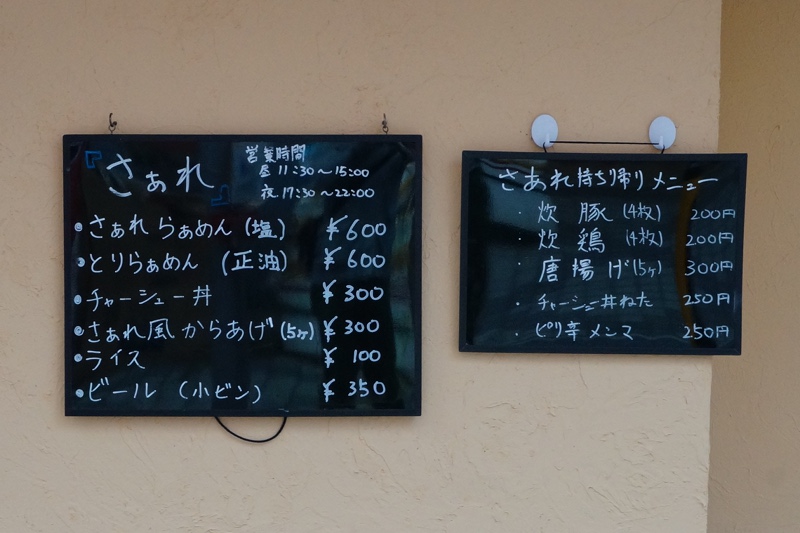 『さぁれ』
営業時間
昼 11:30〜15:00
夜 17:30〜22:00
・さぁれらぁめん(塩) ¥600
・とりらぁめん (正油) ¥600
・チャーシュー丼 ¥300
・さぁれ風からあげ(5ヶ) ¥300
・ライス ¥100
・ビール (小ビン) ¥350
さあれ持ち帰りメニュー
・炊豚(4枚) 200円
・炊鶏(4枚) 200円
・唐揚げ(5ヶ) 300円
・チャーシュー丼ねた 250円
・ピリ辛メンマ 250円